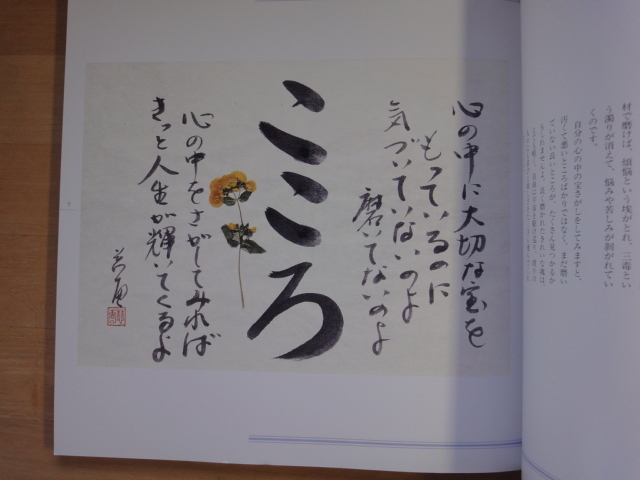 材で磨けば、煩悩という埃がとれ、三毒とい
う濁りが消えて、悩みや苦しみが剥がれてい
くのです。
自分の心の中の宝さがしをしてみますと、
汚くて悪いところばかりではなく、まだ磨い
ていない良いところが、たくさん見つかるか
心の中に大切な宝を
もっているのに
気づいていないのよ
磨いてないのよ
こころ
心の中をさがしてみれば
きっと人生が輝いてくるよ